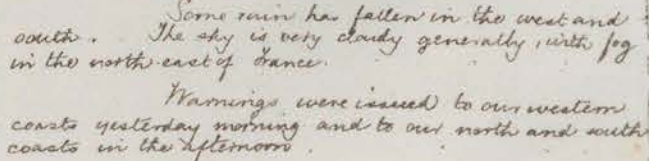 Some rain has fallen in the west and
south. The sky is very cloudy generally, with fog
in the north-east of France.
Warnings were issued to our western
coasts yesterday morning and to our north and south
coasts in the afternoon.